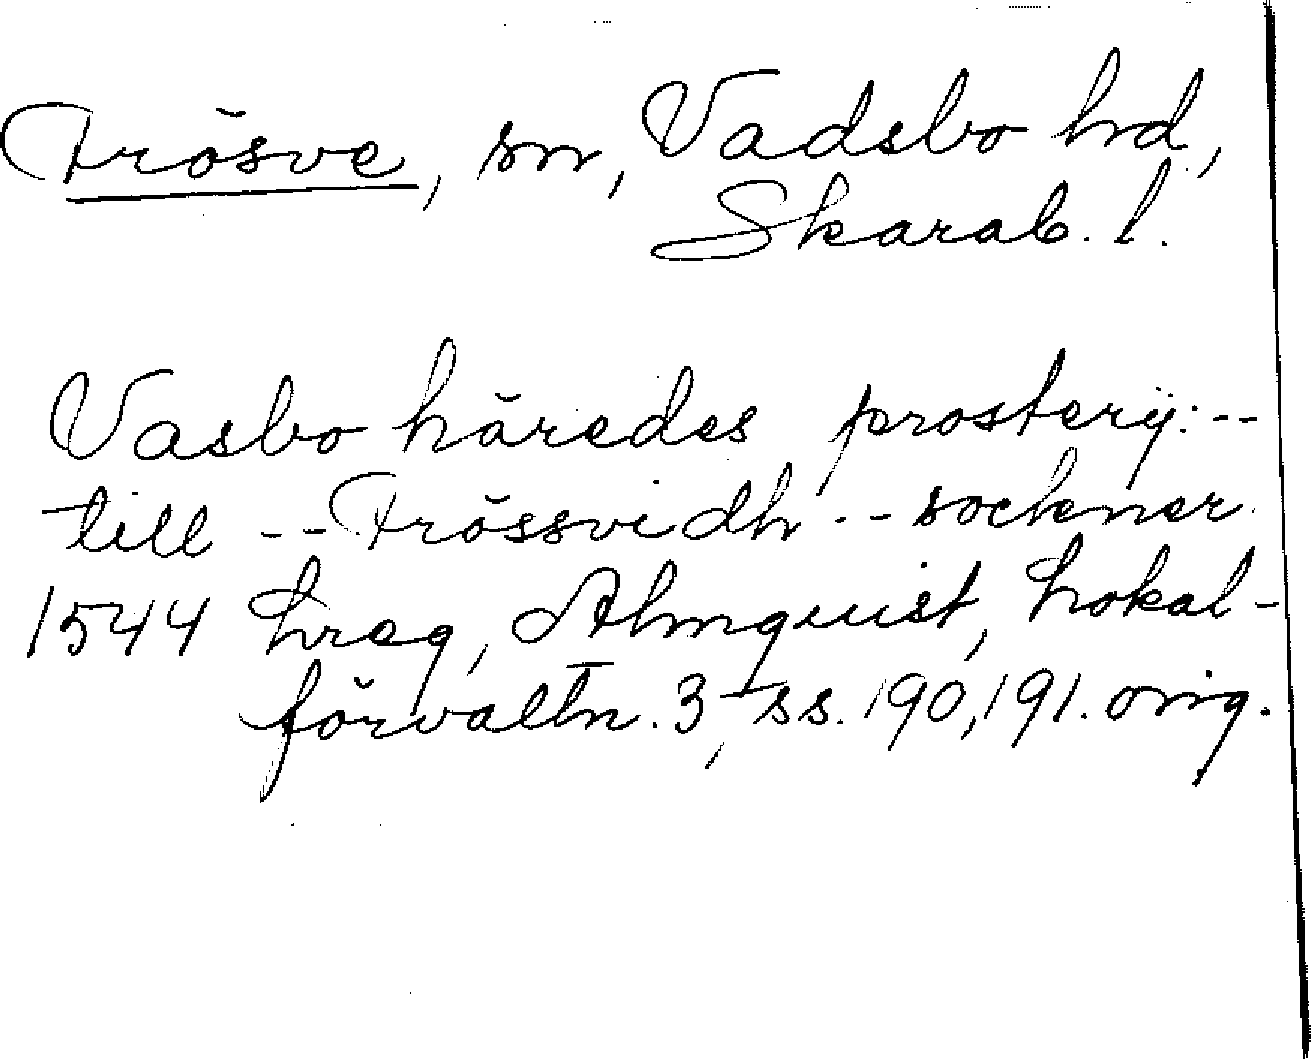 Frösve, sn, Vadsbo hd,
Skarab. l.
Vasbo häredes prosterij: --
till -- Frössvidh -- sockner.
1544 Lreg, Almquist, Lokal-
förvaltn. 3, ss. 190, 191. orig.